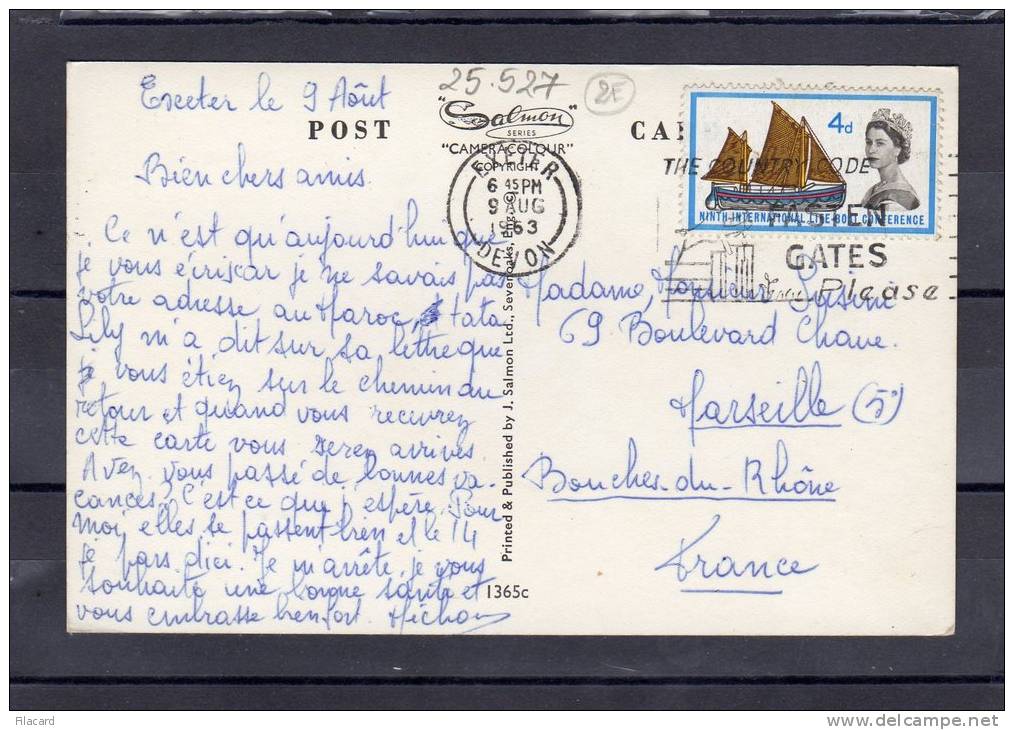 Exeter le 9 Août
25.527
2F
POST
"Salmon"
SERIES
"CAMERACOLOUR"
COPYRIGHT
EXETER
6 45 PM
9 AUG
1963
DEVON
4d
NINTH INTERNATIONAL LIFE-BOAT CONFERENCE
THE COUNTRY CODE
FASTEN
GATES
Please
Bien chers amis.
Ce n'est qu'aujourd'hui que
je vous écris car je ne savais pas
votre adresse au Maroc, tata
Lily m'a dit sur sa lettre que
vous étiez sur le chemin du
retour et quand vous recevrez
cette carte vous serez arrivés.
Avez vous passé de bonnes va-
cances, C'est ce que j'espère. Pour
moi, elles se passent bien et le 14
je pars d'ici. Je m'arrête, je vous
souhaite une bonne santé et
vous embrasse bien fort. Michou
Madame, Monsieur
69 Boulevard Chave.
Marseille (5°)
Bouches-du-Rhône
France
Printed & Published by J. Salmon Ltd., Sevenoaks, Eng. ©
1365c
filacard
www.delcampe.net